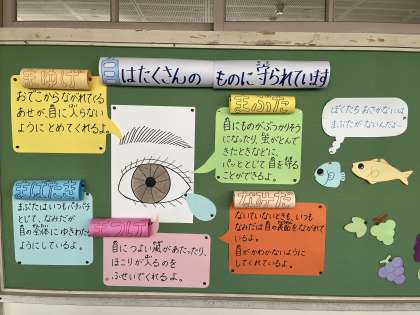 目はたくさんの ものに守られています
まゆげ
おでこからながれてくる
あせが、目に入らない
ようにとめてくれるよ。
まぶた
目にものがぶつかりそう
になったり、虫がとんで
きたときなどに、
パッととじて目を守る
ことができるよ。
ぼくたち おさかなには
まぶたがないんだよ〜
まばたき
まぶたはいつもパチパチ
として、なみだが
目の全体にゆきわたる
ようにしているよ。
まつげ
目につよい風があたったり、
ほこりが入るのを
ふせいでくれるよ。
なみだ
ないていないときも、いつも
なみだは目の表面をながれて
いるよ。
目がかわかないように
してくれているよ。